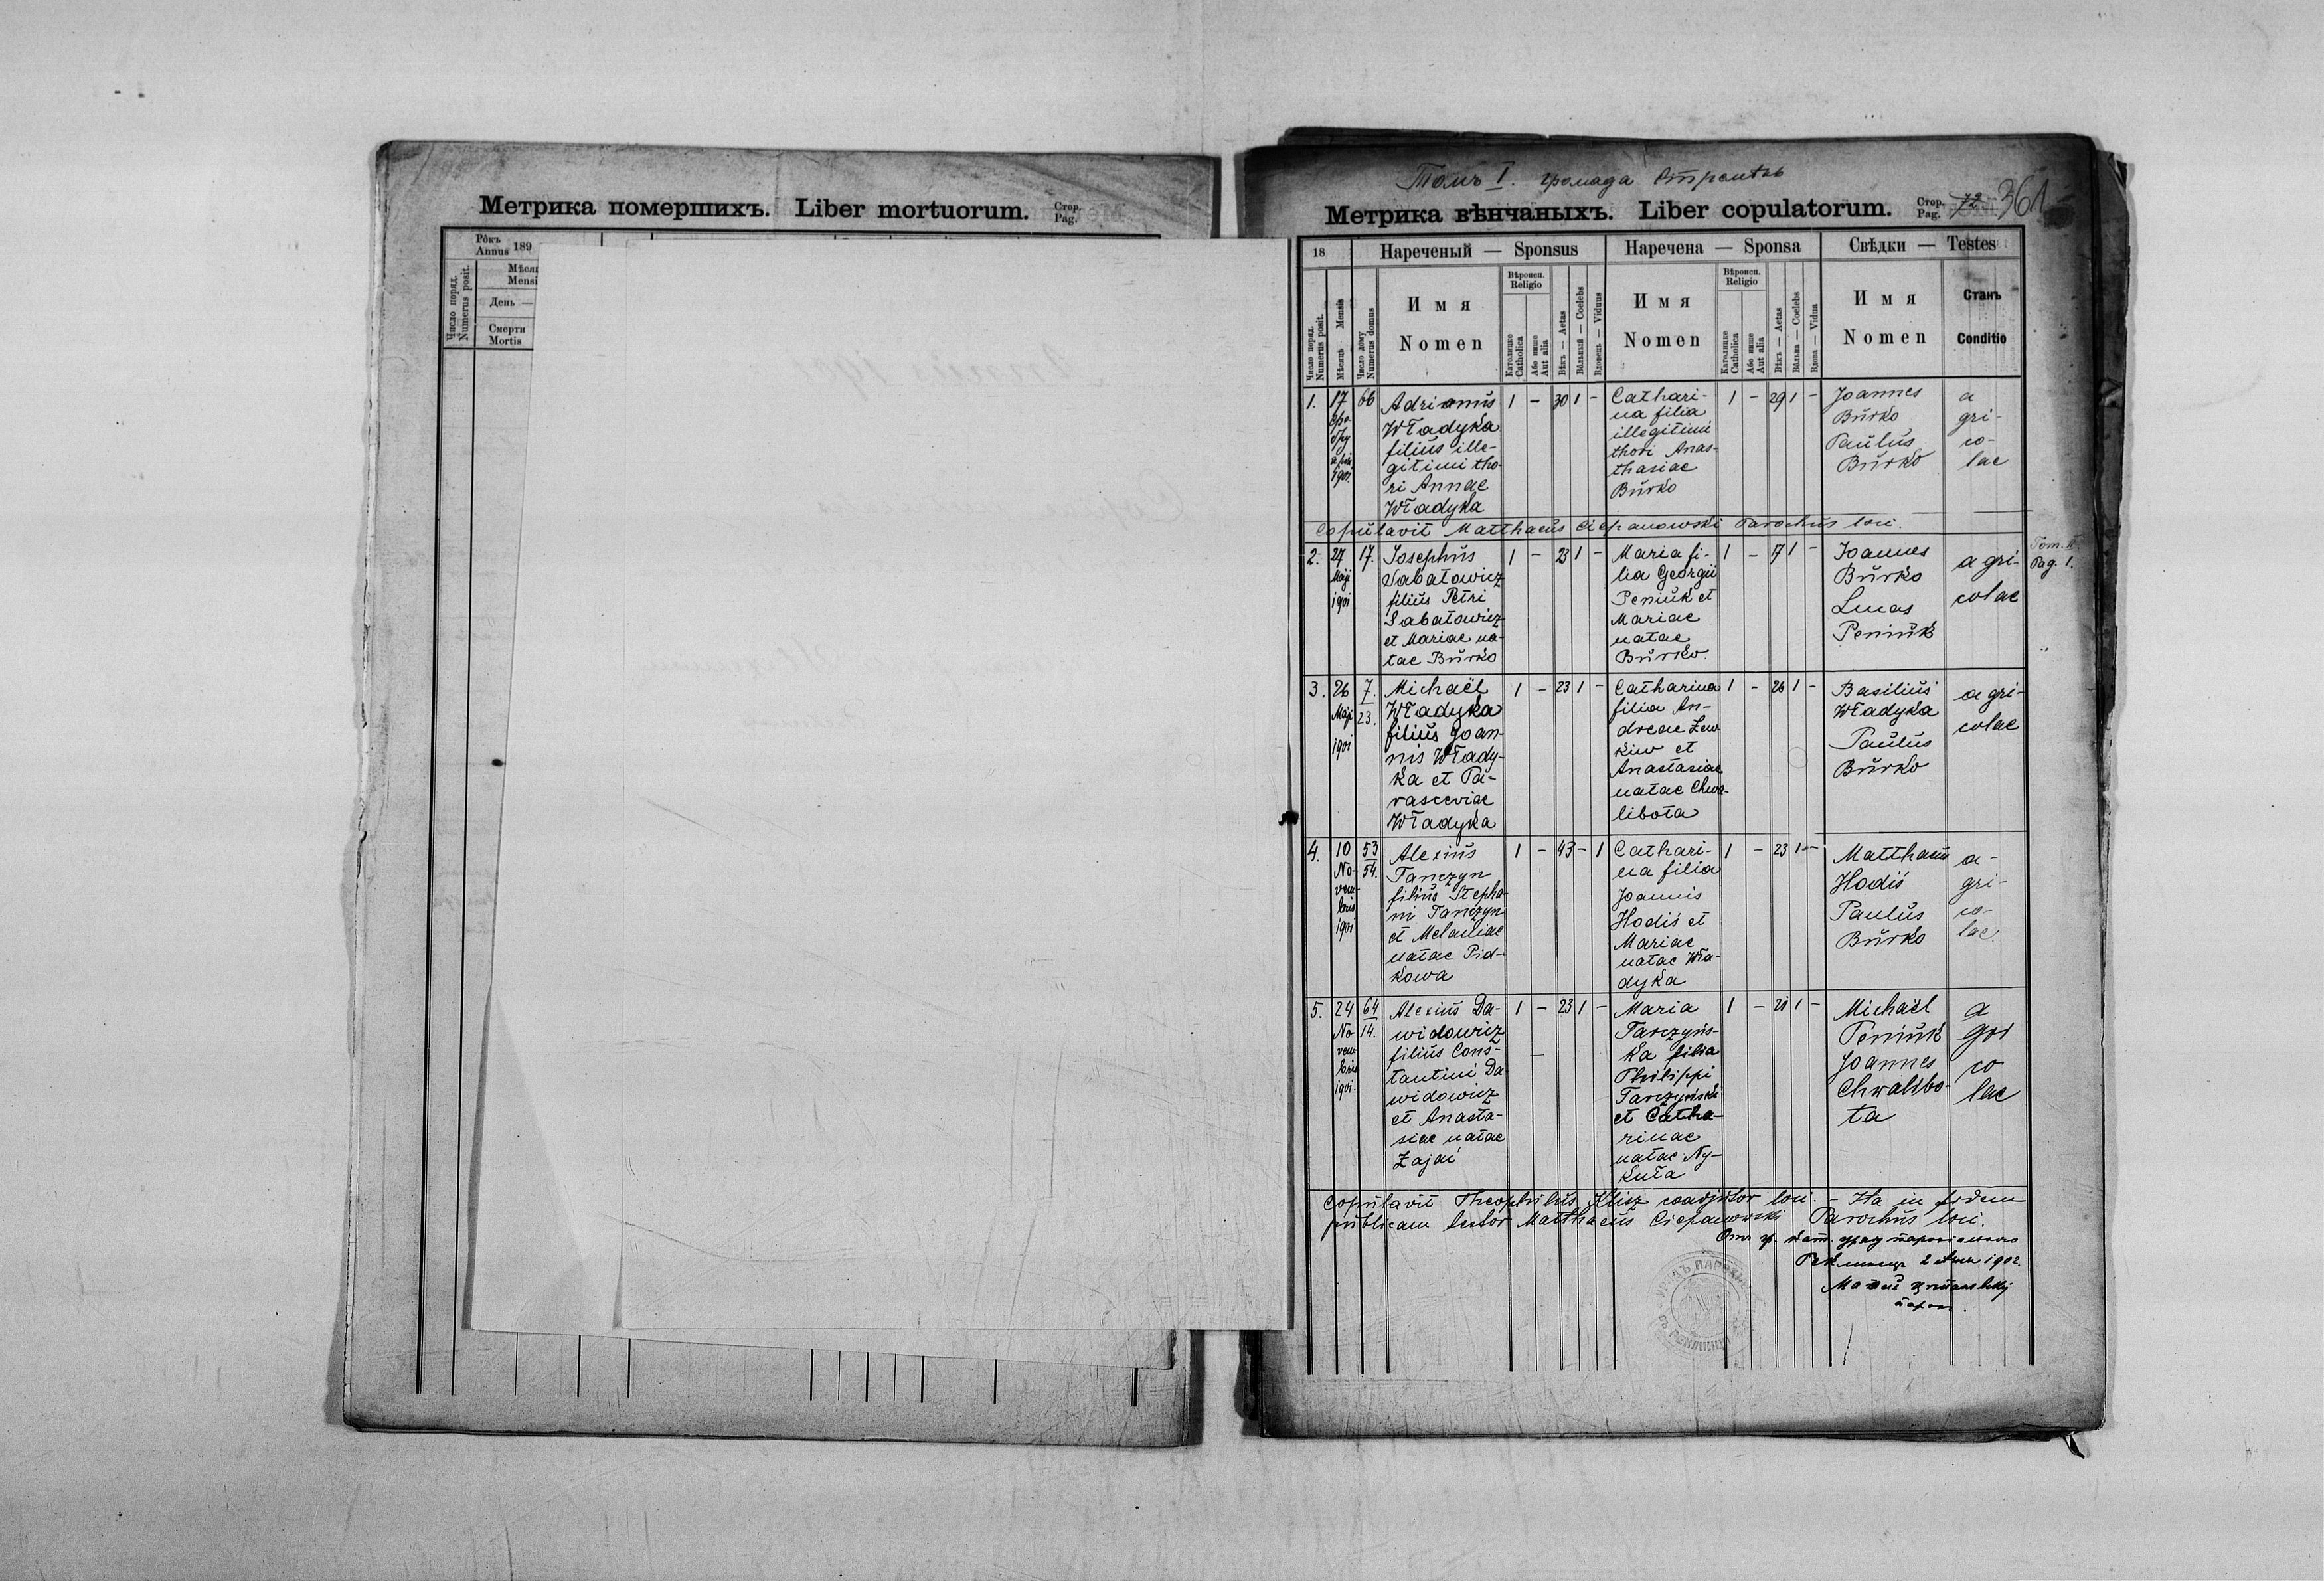 Метрика помершихъ. Liber mortuorum. Стор. Pag.
Рôкъ Annus 189
Число поряд. Numerus posit.
День —
Смерти
Mortis
Томъ I. громада
Метрика вѣнчаныхъ. Liber copulatorum. Стор. Pag. 72 361
18
Нареченый — Sponsus
Наречена — Sponsa
Свѣдки — Testes
Число поряд. Numerus posit.
Мѣсяць Mensis
Число дому Numerus domus
Имя
Nomen
Вѣроисп.
Religio
Католицке Catholica
Або инше Aut alia
Вѣкъ — Aetas
Вôльный — Coelebs
Вдовець — Viduus
Имя
Nomen
Вѣроисп.
Religio
Католицке Catholica
Або инше Aut alia
Вѣкъ — Aetas
Вôльна — Coelebs
Вдова — Vidua
Имя
Nomen
Станъ
Conditio
1. 17 66
1901
Adrianus
Władyka
filius ille-
gitimi tho-
ri Annae
Władyka
1 – 30 1 –
Cathari-
na filia
illegitimi
thori Anas-
thasiae
Burko
1 – 29 1 –
Joannes
Burko
Paulus
Burko
a
gri-
co-
lae
Copulavit Matthaeus Ciepanowski Parochus loci.
2. 27 17.
Maji
1901
Josephus
Sabatowicz
filius Petri
Sabatowicz
et Mariae na-
tae Burko
1 – 23 1 –
Maria fi-
lia Georgii
Peniuk et
Mariae
natae
Burko.
1 – 17 1 –
Joannes
Burko
Lucas
Peniuk
agri-
colae
Tom. II.
Pag. 1.
3. 26 7.
Maji 23.
1901
Michaël
Władyka
filius Joan-
nis Włady-
ka et Pa-
rasceviae
Władyka
1 – 23 1 –
Catharina
filia An-
dreae Lew
kiw et
Anastasiae
natae Chwa-
libota
1 – 26 1 –
Basilius
Władyka
Paulus
Burko
agri-
colae
4. 10 53
No- 54.
vem-
bris
1901
Alexius
Tanczyn
filius Stepha-
ni Tanczyn
et Melaniae
natae Pid-
kowa
1 – 43 – 1
Cathari-
na filia
Joannis
Hodiś et
Mariae
natae Wła-
dyka
1 – 23 1 –
Matthaeus
Hodiś
Paulus
Burko
a-
gri-
co-
lae.
5. 24 64
No- 14.
vem-
bris
1901.
Alexius Da-
widowicz
filius Cons-
tantini Da-
widowicz
et Anasta-
siae natae
Zajać
1 – 23 1 –
Maria
Tarczyńs-
ka filia
Philippi
Tarczyński
et Catha-
rinae
natae Ny-
kuta
1 – 21 1 –
Michaël
Peniuk
Joannes
Chwalibo-
ta
a
gri
co
lae
Copulavit Theophilus Klisz coadjutor loci. – Ita in fidem
publicam testor Matthaeus Ciepanowski Parochus loci.
1902.